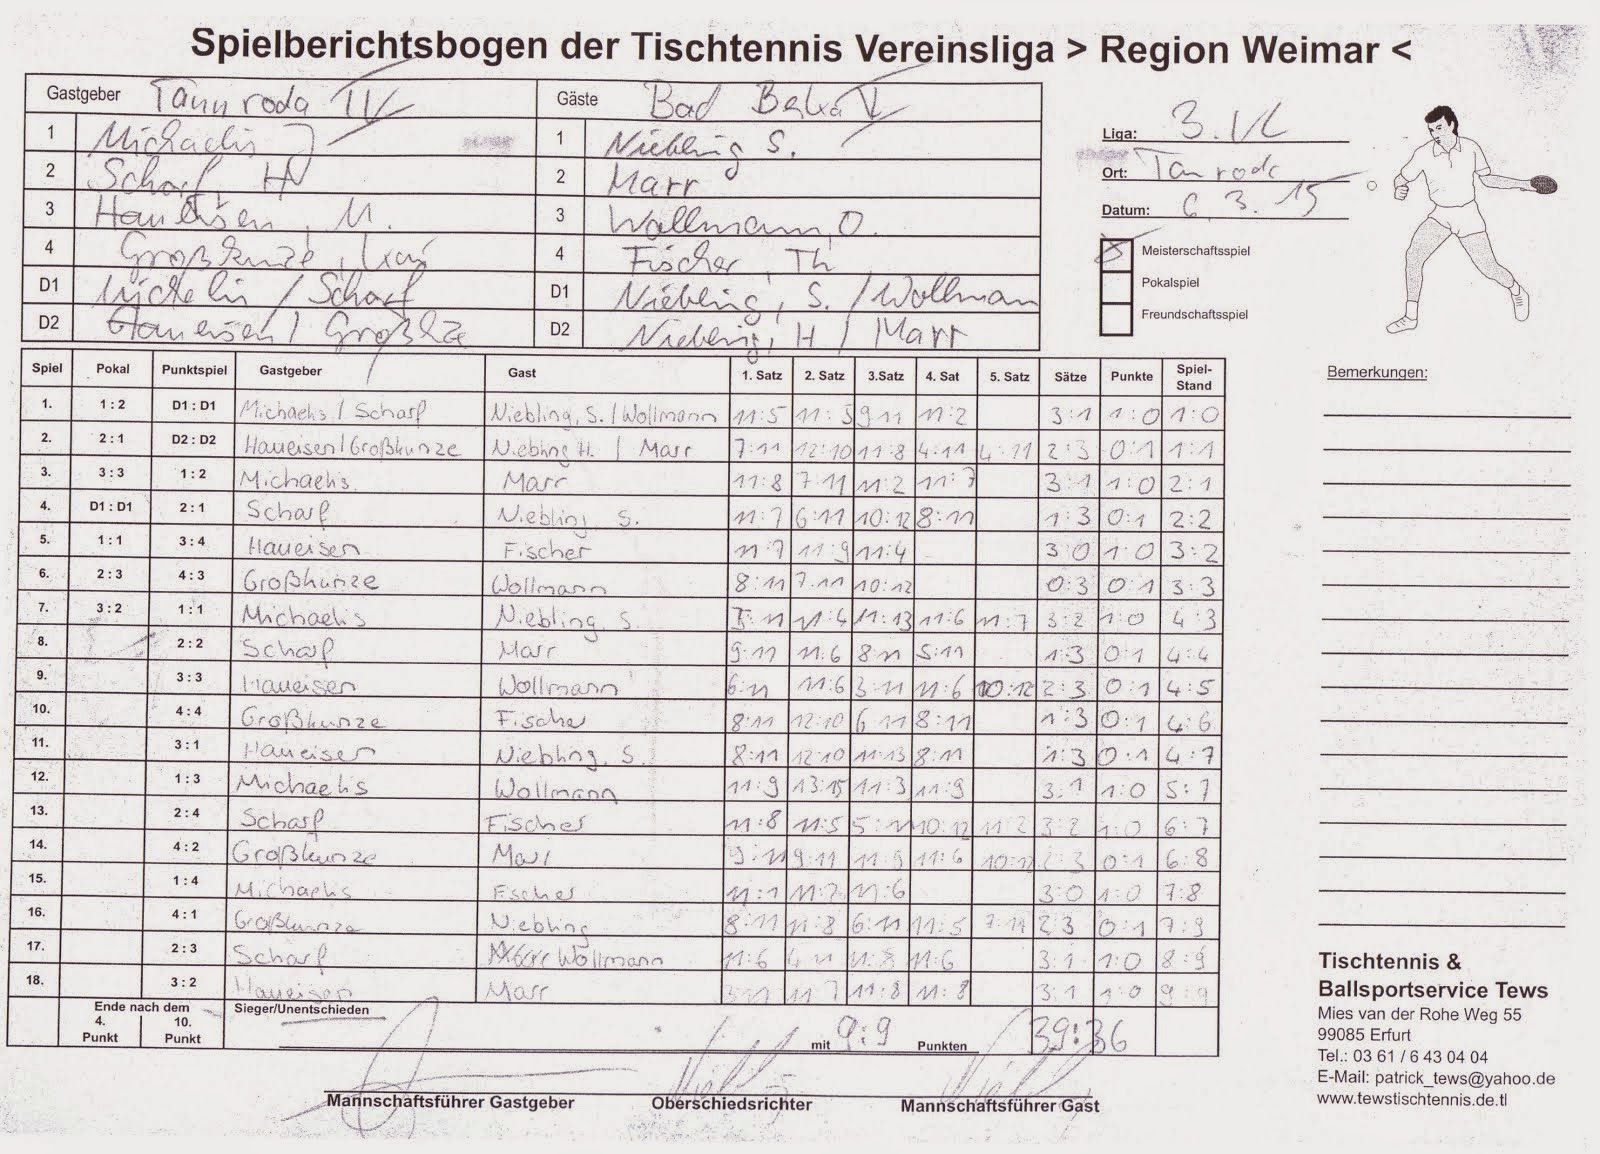 Spielberichtsbogen der Tischtennis Vereinsliga > Region Weimar <
Gastgeber Tannroda IV Gäste Bad Berka V
1 Michaelis J 1 Niebling S.
2 Scharf, H 2 Marr
3 Haueisen, M. 3 Wollmann, O.
4 Großkunze, Kai 4 Fischer, Th
D1 Michaelis / Scharf D1 Niebling, S. / Wollmann
D2 Haueisen / Großkunze D2 Niebling, H / Marr
Liga: 3. VL
Ort: Tanroda
Datum: 6. 3. 15
Meisterschaftsspiel
Pokalspiel
Freundschaftsspiel
Spiel Pokal Punktspiel Gastgeber Gast 1. Satz 2. Satz 3.Satz 4. Sat 5. Satz Sätze Punkte Spiel-Stand
1. 1 : 2 D1 : D1 Michaelis / Scharf Niebling, S. / Wollmann 11:5 11:5 9:11 11:2 3:1 1:0 1:0
2. 2 : 1 D2 : D2 Haueisen / Großkunze Niebling H. / Marr 7:11 12:10 11:8 4:11 4:11 2:3 0:1 1:1
3. 3 : 3 1 : 2 Michaelis Marr 11:8 7:11 11:2 11:7 3:1 1:0 2:1
4. D1 : D1 2 : 1 Scharf Niebling, S. 11:7 6:11 10:12 8:11 1:3 0:1 2:2
5. 1 : 1 3 : 4 Haueisen Fischer 11:7 11:9 11:4 3:0 1:0 3:2
6. 2 : 3 4 : 3 Großkunze Wollmann 8:11 7:11 10:12 0:3 0:1 3:3
7. 3 : 2 1 : 1 Michaelis Niebling, S. 5:11 11:4 11:13 11:6 11:7 3:2 1:0 4:3
8. 2 : 2 Scharf Marr 9:11 11:6 8:11 5:11 1:3 0:1 4:4
9. 3 : 3 Haueisen Wollmann 6:11 11:6 3:11 11:6 10:12 2:3 0:1 4:5
10. 4 : 4 Großkunze Fischer 8:11 12:10 6:11 8:11 1:3 0:1 4:6
11. 3 : 1 Haueisen Niebling, S. 8:11 12:10 11:13 8:11 1:3 0:1 4:7
12. 1 : 3 Michaelis Wollmann 11:9 13:15 11:3 11:9 3:1 1:0 5:7
13. 2 : 4 Scharf Fischer 11:8 11:5 5:11 10:12 11:2 3:2 1:0 6:7
14. 4 : 2 Großkunze Marr 9:11 9:11 11:9 11:6 10:12 2:3 0:1 6:8
15. 1 : 4 Michaelis Fischer 11:1 11:2 11:6 3:0 1:0 7:8
16. 4 : 1 Großkunze Niebling 8:11 11:8 6:11 11:5 7:11 2:3 0:1 7:9
17. 2 : 3 Scharf Wollmann 11:6 4:11 11:8 11:6 3:1 1:0 8:9
18. 3 : 2 Haueisen Marr 3:11 11:7 11:8 11:8 3:1 1:0 9:9
Ende nach dem
4. Punkt 10. Punkt
Sieger/Unentschieden
mit 9:9 Punkten 39:36
Mannschaftsführer Gastgeber Oberschiedsrichter Mannschaftsführer Gast
Bemerkungen:
Tischtennis &
Ballsportservice Tews
Mies van der Rohe Weg 55
99085 Erfurt
Tel.: 03 61 / 6 43 04 04
E-Mail: patrick_tews@yahoo.de
www.tewstischtennis.de.tl